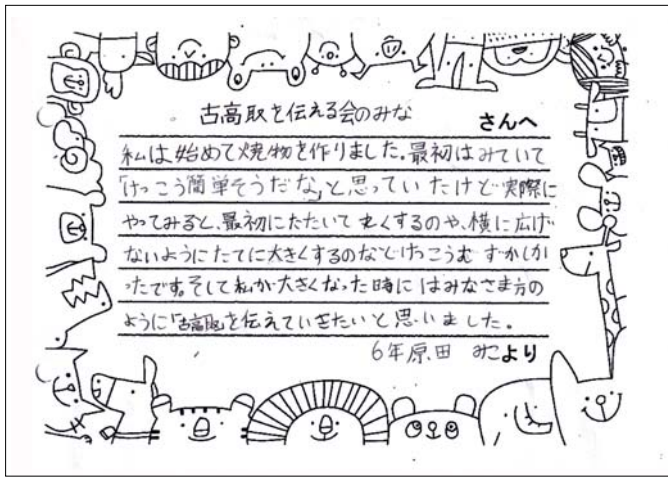 古高取を伝える会のみな さんへ
私は始めて焼物を作りました。最初はみていて
「けっこう簡単そうだな」と思っていたけど実際に
やってみると、最初にたたいて丸くするのや、横に広げ
ないようにたてに大きくするのなどけっこうむずかしか
ったです。そして私が大きくなった時にはみなさま方の
ように「古高取」を伝えていきたいと思いました。
6年原田 みこより